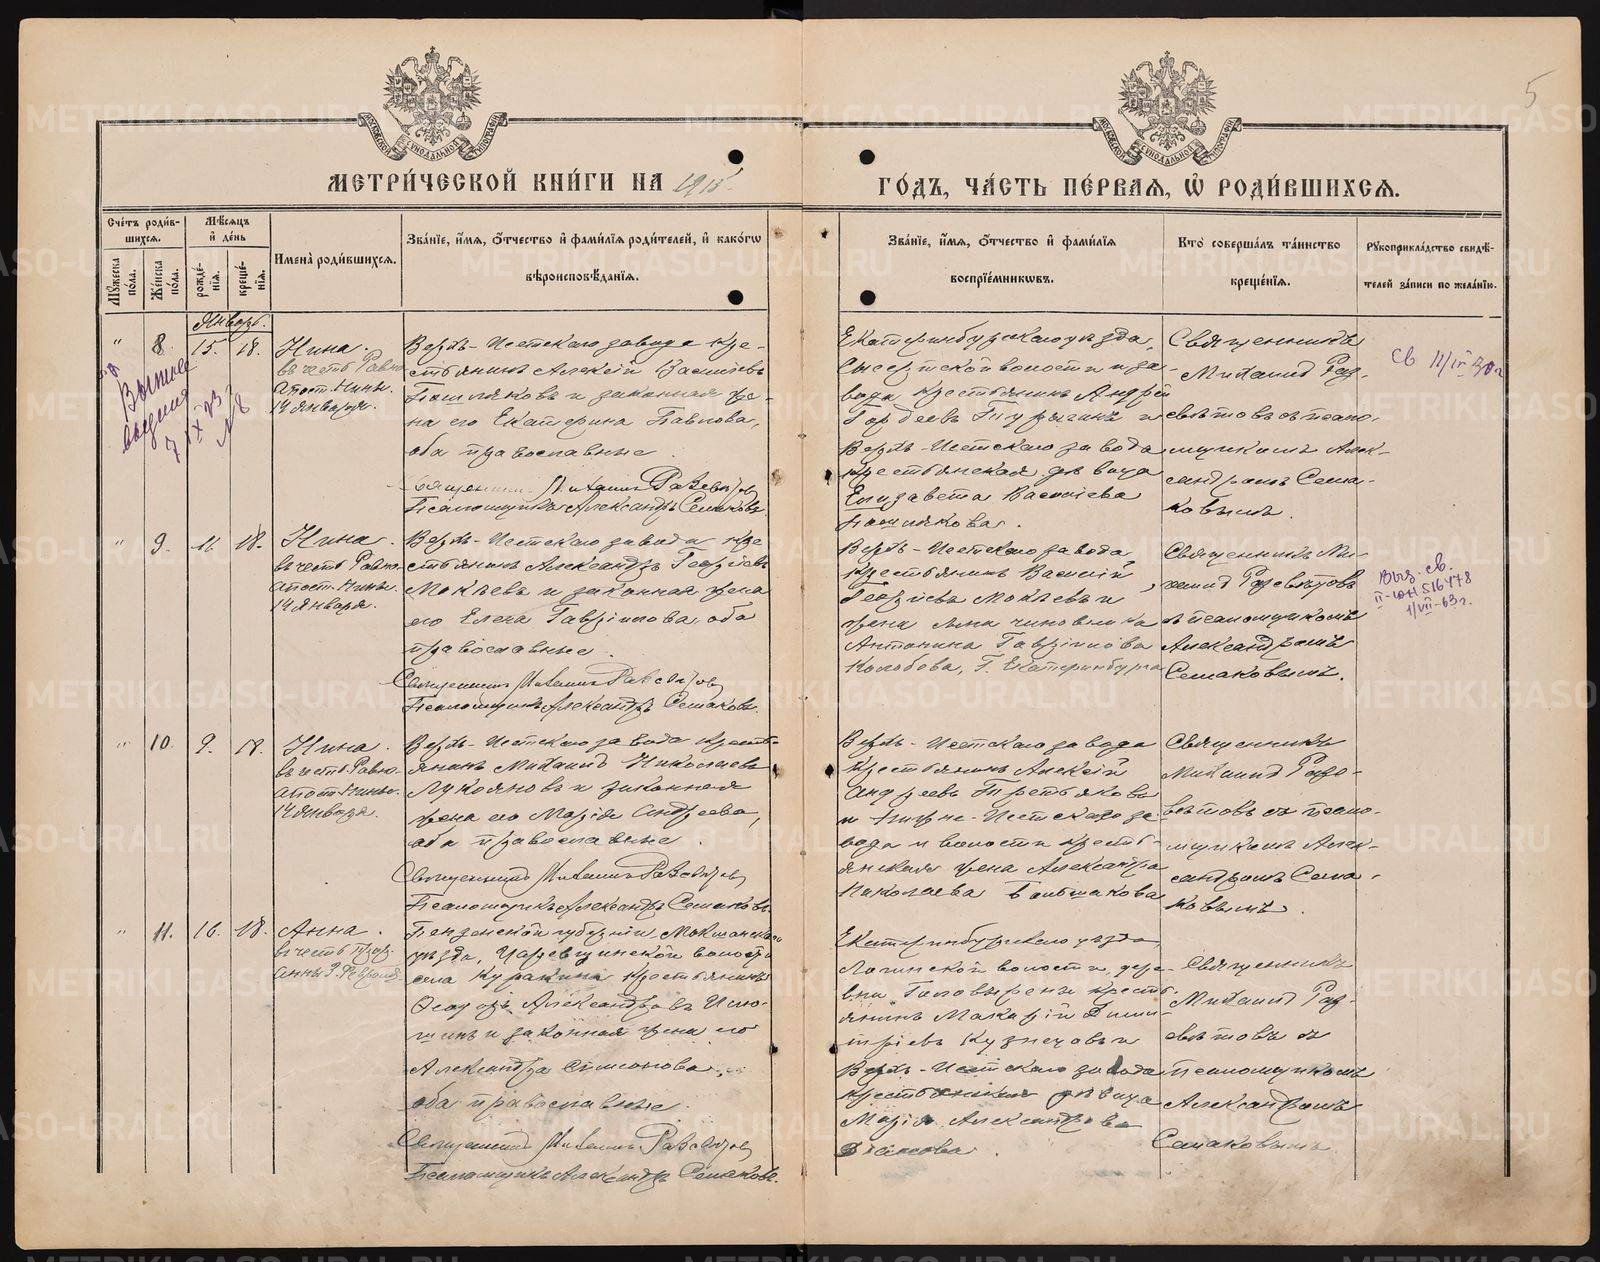 5
МЕТРИ́ЧЕСКОЙ КНИ́ГИ НА 1915
ГО́ДЪ, ЧА́СТЬ ПЕ́РВАЯ, Ѡ҆ РОДИ́ВШИХСЯ.
МОСКОВСКОЙ СУНОДАЛЬНОЙ ТИПОГРАФІИ
МОСКОВСКОЙ СУНОДАЛЬНОЙ ТИПОГРАФІИ
Сче́тъ роди́в-
шихся.
Мѣсяцъ
и҆ де́нь
Мꙋжеска по́ла.
Же́нска по́ла.
рожде́-
нїя.
креще́-
нїя.
Имена̀ роди́вшихся.
Зва́нїе, и҆́мя, ѻ҆́тчество и҆ фами́лїя роди́телей, и҆ како́гѡ
вѣроисповѣ́данїя.
Зва́нїе, и҆́мя, ѻ҆́тчество и҆ фами́лїя
воспрїе́мникѡвъ.
Кто̀ соверша́лъ та́инство
креще́нїя.
Рꙋкоприкла́дство свидѣ́-
телей за́писи по жела́нїю.
Январь.
" 8. 15. 18.
Нина.
въ честь Равно-
апост. Нины.
14 января.
Верхъ-Исетскаго завода кре-
стьянинъ Алексій Василіевъ
Пошляковъ и законная же-
на его Екатерина Павлова,
оба православные.
Священникъ Михаилъ Развѣтовъ
Псаломщикъ Александръ Семаковъ.
Екатеринбургскаго уѣзда,
Сысертской волости и за-
вода крестьянинъ Андрей
Гордѣевъ Турыгинъ и
Верхъ-Исетскаго завода
крестьянская дѣвица
Елизавета Василіева
Пошлякова.
Священникъ
Михаилъ Раз-
вѣтовъ съ псало-
мщикомъ Алек-
сандромъ Сема-
ковымъ.
св 11/IV
" 9. 11. 18.
Нина.
въ честь Равно-
апост. Нины.
14 января.
Верхъ-Исетскаго завода кре-
стьянинъ Александръ Георгіевъ
Мокѣевъ и законная жена
его Елена Гавріилова, оба
православные.
Священникъ Михаилъ Развѣтовъ
Псаломщикъ Александръ Семаковъ.
Верхъ-Исетскаго завода
крестьянинъ Василій
Георгіевъ Мокѣевъ и
жена чиновника
Антонина Гавріилова
Колобова, Г. Екатеринбурга
Священникъ Ми-
хаилъ Развѣтовъ
съ псаломщикомъ
Александромъ
Семаковымъ.
Выд. св.
II-ЮН 516478
1/VII-63 г.
" 10. 9. 18.
Нина.
въ честь Равно-
апост. Нины.
14 января.
Верхъ-Исетскаго завода кресть-
янинъ Михаилъ Николаевъ
Лукояновъ и законная
жена его Марія Андреева,
оба православные.
Священникъ Михаилъ Развѣтовъ
Псаломщикъ Александръ Семаковъ.
Верхъ-Исетскаго завода
крестьянинъ Алексій
Андреевъ Третьяковъ
и Нижне-Исетскаго за-
вода и волости кресть-
янская жена Александра
Николаева Большакова
Священникъ
Михаилъ Раз-
вѣтовъ съ псало-
мщикомъ Алек-
сандромъ Сема-
ковымъ.
" 11. 16. 18.
Анна.
въ честь прор.
Анны 3 Февраля
Пензенской губерніи, Мокшанскаго
уѣзда, Царевщинской волости
села Куракина крестьянинъ
Ѳедоръ Александровъ
и законная жена его
Александра Симонова,
оба православные.
Священникъ Михаилъ Развѣтовъ
Псаломщикъ Александръ Семаковъ.
Екатеринбургскаго уѣзда,
Логиновской волости, дере-
вни Головырина кресть-
янинъ Макарій Дими-
тріевъ Кузнецовъ и
Верхъ-Исетскаго завода
крестьянская дѣвица
Марія Александрова
Священникъ
Михаилъ Раз-
вѣтовъ съ
Псаломщикомъ
Александромъ
Семаковымъ.
METRIKI.GASO-URAL.RU